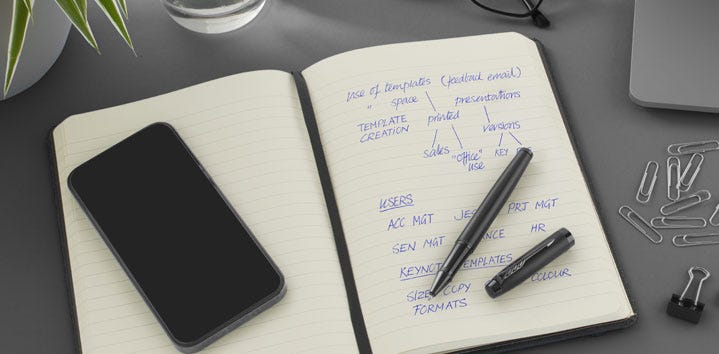 use of templates (feedback email)
" space presentations
TEMPLATE CREATION printed versions
sales "office" use KEY
USERS
ACC MGT PRJ MGT
SEN MGT HR
TEMPLATES
COPY COLOUR
FORMATS